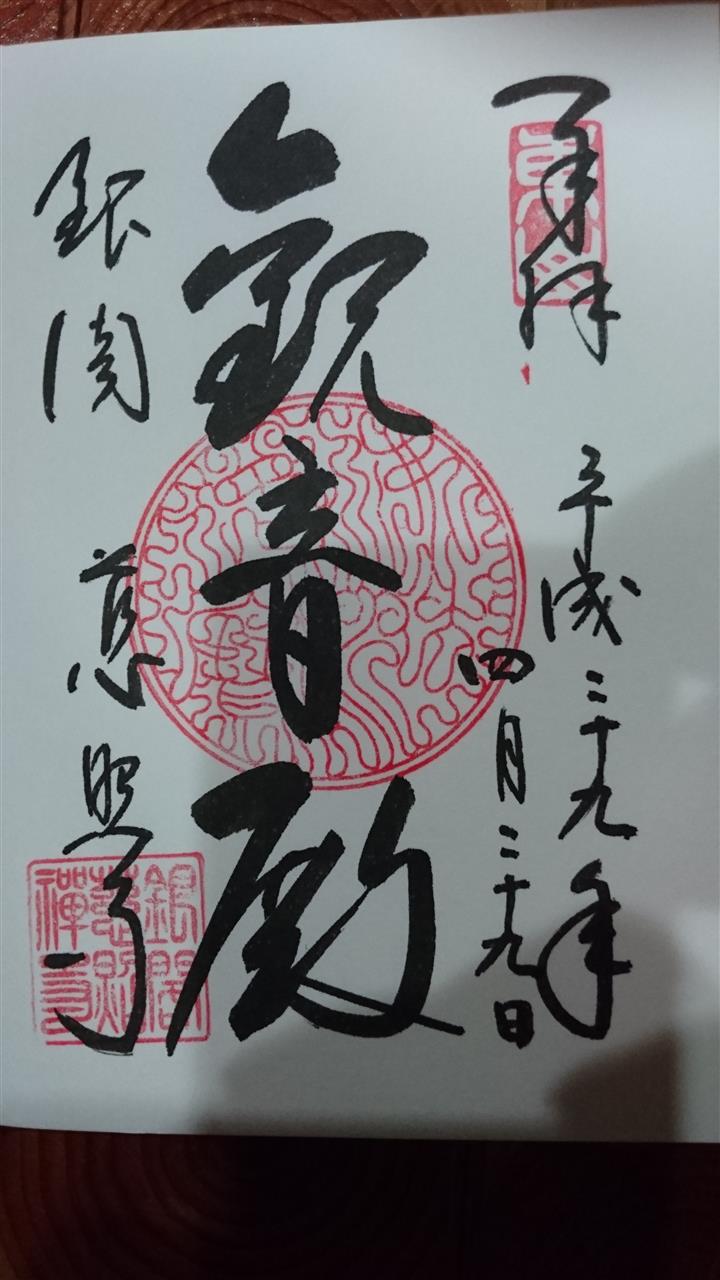 奉拝
平成二十九年
四月二十九日
觀音殿
銀閣 慈照寺
銀閣
慈照
禅寺